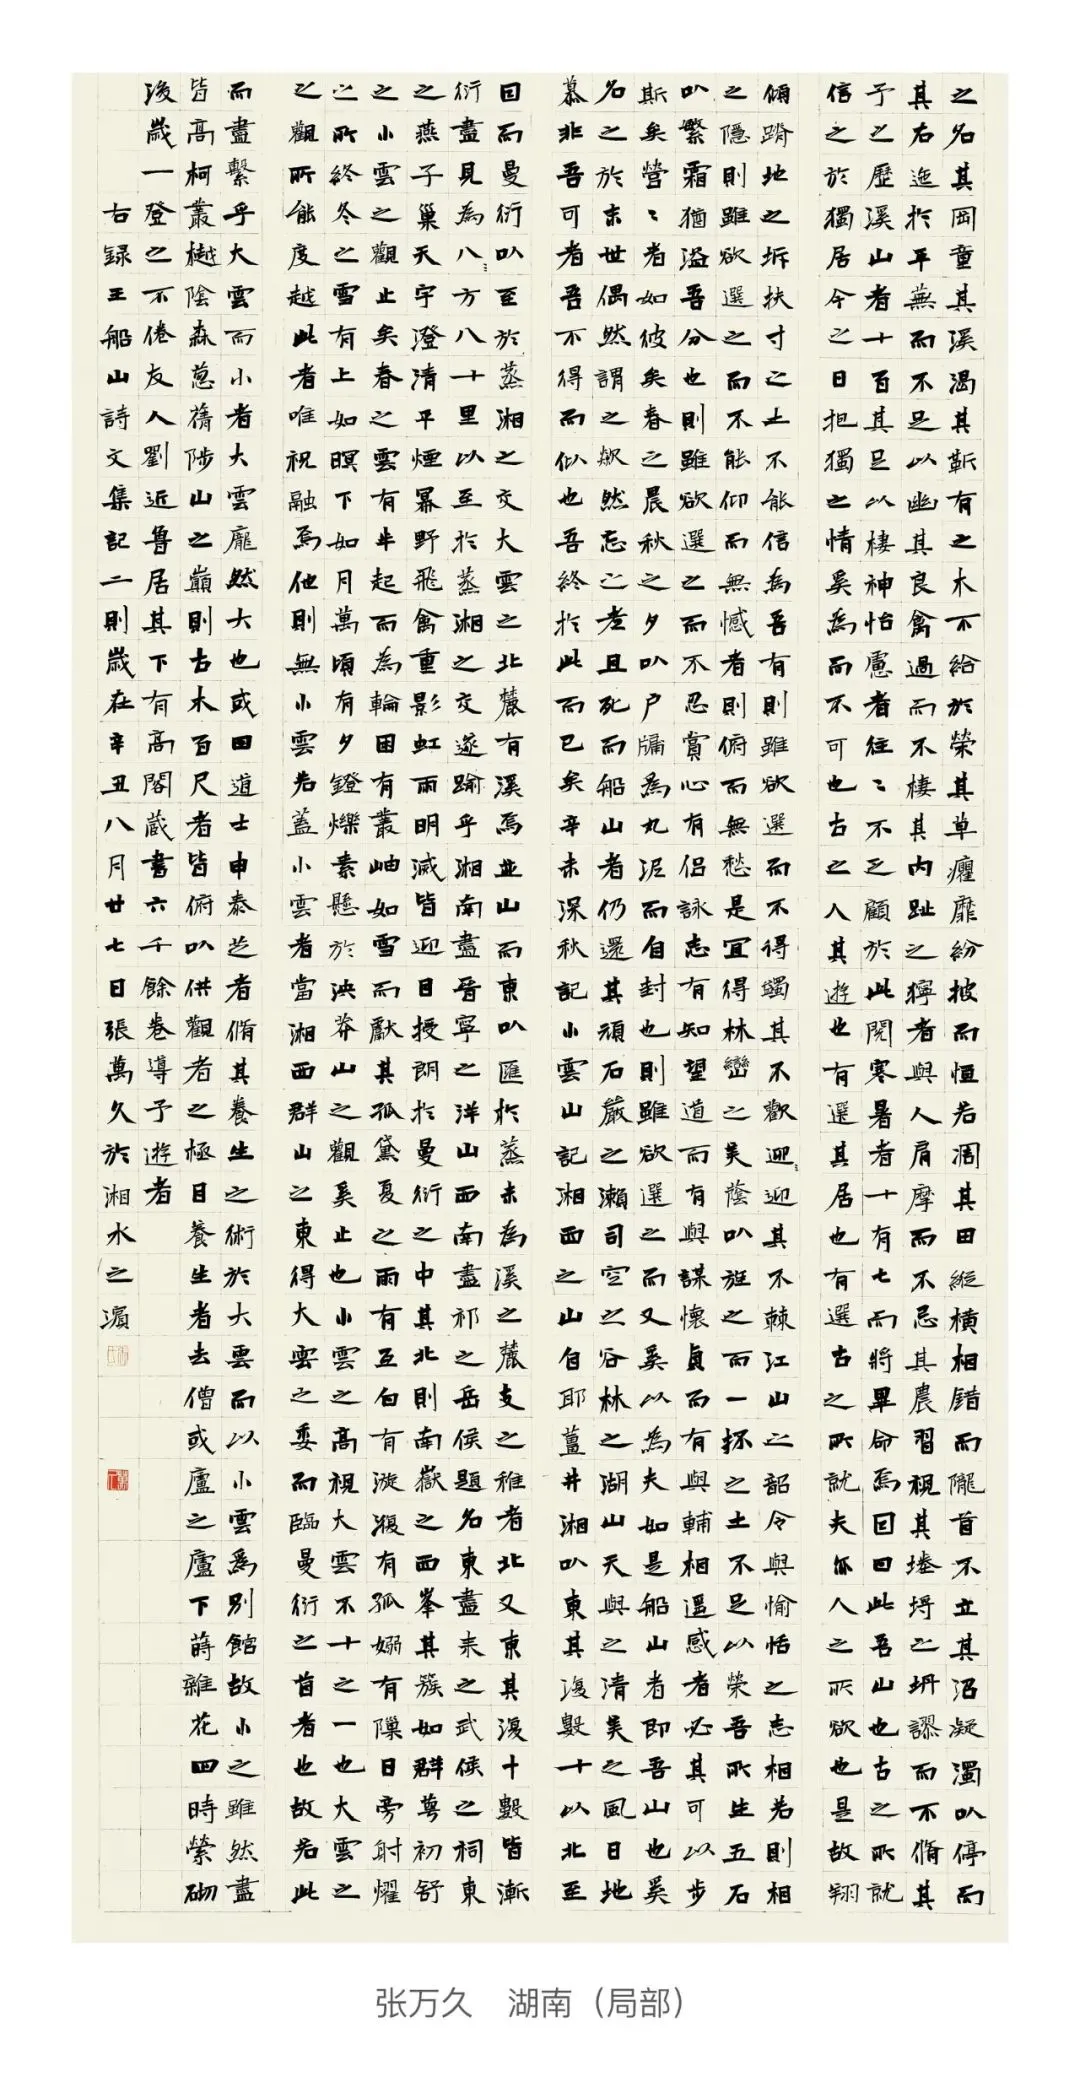 之名其岡童其溪渴其靳有之木不給於榮其草癯靡紛披而恒若凋其田縱橫相錯而隴首不立其沼凝濁以停而
其右迤於平蕪而不足以幽其良禽過而不棲其內趾之獰者與人肩摩而不忌其農習視其塍埒之坍謬而不脩其
予之歷溪山者十百其足以棲神怡慮者往〻不乏顧於此閱寒暑者十有七而將畢命焉因曰此吾山也古之所就
信之於獨居今之日抱獨之情奚為而不可也古之人其遊也有選其居也有選古之所就夫亦人之所欲也是故翔
傾蹐地之坼扶寸之土不能信為吾有則雖欲選而不得蠲其不歡迎迎其不棘江山之韶令與愉恬之志相若則相
之隱則雖欲選之而不能仰而無憾者則俯而無愁是宜得林巒之美蔭以旌之而一抔之土不足以榮吾所生五石
以繁霜猶溢吾分也則雖欲選之而不忍賞心有侶詠志有知望道而有與謀懷貞而有與輔相遥感者必其可以步
斯矣營〻者如彼矣春之晨秋之夕以戶牖為丸泥而自封也則雖欲選之而又奚以為夫如是船山者即吾山也奚
名之於末世偶然謂之歘然忘之老且死而船山者仍還其頑石嚴之瀨司空之谷林之湖山天與之清美之風日地
慕非吾可者吾不得而似也吾終於此而已矣辛未深秋記小雲山記湘西之山自耶薑井湘以東其複數十以北至
回而曼衍以至於蒸湘之交大雲之北麓有溪焉並山而東以匯於蒸未為溪之麓支之稚者北又東其複十數皆漸
衍盡見為八方八十里以至於蒸湘之交遂踰乎湘南盡晉寧之洋山西南盡祁之岳侯題名東盡耒之武侯之祠東
之燕子巢天宇澄清平煙冪野飛禽重影虹雨明滅皆迎目授朗於曼衍之中其北則南嶽之西峯其簇如群萼初舒
之小雲之觀止矣春之雲有半起而為輪囷有叢岫如雪而獻其孤黛夏之雨有亙白有漩澓有孤嫋有隙日旁射耀
之所終冬之雪有上如暝下如月萬頃有夕鐙爍素懸於泱莽山之觀奚止也小雲之高視大雲不十之一也大雲之
之觀所能度越此者唯祝融焉他則無小雲若蓋小雲者當湘西群山之東得大雲之委而臨曼衍之首者也故若此
而盡繫乎大雲而小者大雲龐然大也或曰道士申泰芝者脩其養生之術於大雲而以小雲為別館故小之雖然盡
皆高柯叢樾陰森葱蒨陟山之巔則古木百尺者皆俯以供觀者之極目養生者去僧或廬之廬下蒔雜花四時縈砌
後歲一登之不倦友人劉近魯居其下有高閣藏書六千餘卷導予遊者
右録王船山詩文集記二則歲在辛丑八月廿七日張萬久於湘水之濱
张万久 湖南（局部）